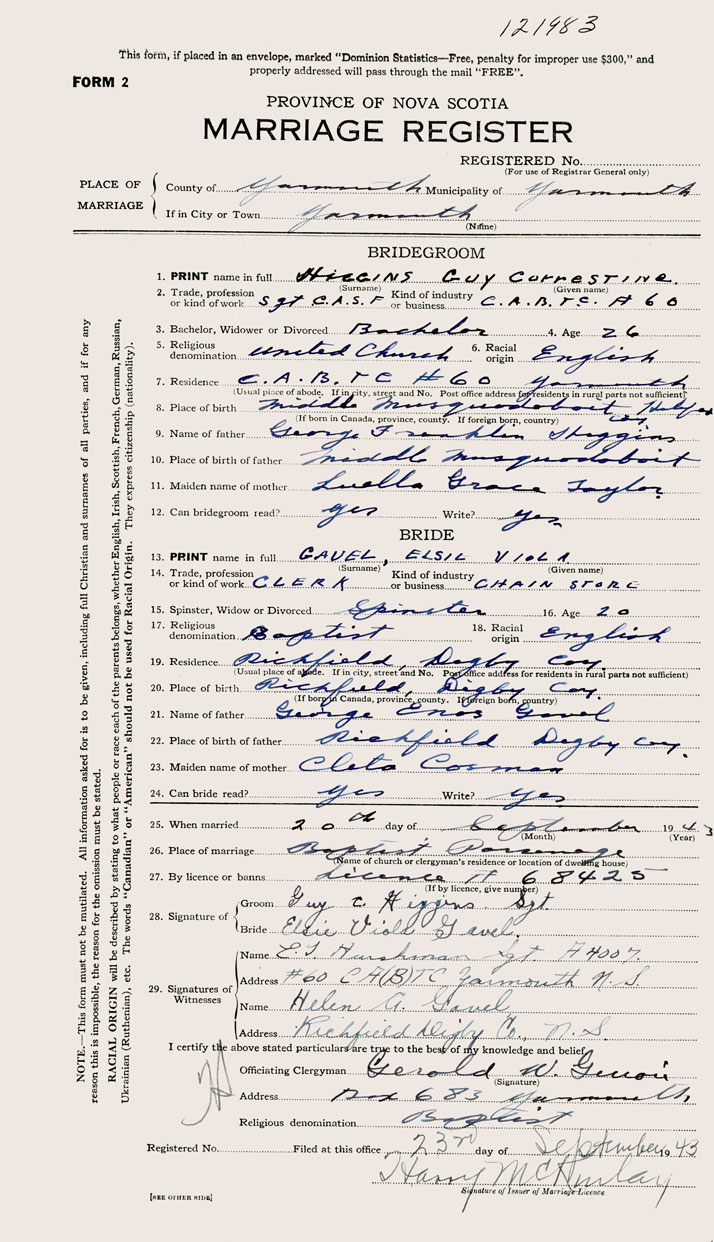 121983
This form, if placed in an envelope, marked "Dominion Statistics—Free, penalty for improper use $300," and
properly addressed will pass through the mail "FREE".
FORM 2
PROVINCE OF NOVA SCOTIA
MARRIAGE REGISTER
REGISTERED No.
(For use of Registrar General only)
PLACE OF MARRIAGE
County of Yarmouth Municipality of Yarmouth
If in City or Town Yarmouth
(Name)
BRIDEGROOM
1. PRINT name in full HIGGINS GUY CURRESTINE.
(Surname) (Given name)
2. Trade, profession or kind of work Sgt C.A.S.F Kind of industry or business C.A.B.T.C. # 60
3. Bachelor, Widower or Divorced Bachelor 4. Age 26
5. Religious denomination United Church 6. Racial origin English
7. Residence C.A.B.T C # 60 Yarmouth
(Usual place of abode. If in city, street and No. Post office address for residents in rural parts not sufficient)
8. Place of birth Middle Musquodoboit Halifax Coy
(If born in Canada, province, county. If foreign born, country)
9. Name of father George Franklin Higgins
10. Place of birth of father Middle Musquodoboit
11. Maiden name of mother Luella Grace Taylor
12. Can bridegroom read? yes Write? yes
BRIDE
13. PRINT name in full GAVEL, ELSIE VIOLA
(Surname) (Given name)
14. Trade, profession or kind of work CLERK Kind of industry or business CHAIN STORE
15. Spinster, Widow or Divorced Spinster 16. Age 20
17. Religious denomination Baptist 18. Racial origin English
19. Residence Richfield, Digby Coy.
(Usual place of abode. If in city, street and No. Post office address for residents in rural parts not sufficient)
20. Place of birth Richfield, Digby Coy.
(If born in Canada, province, county. If foreign born, country)
21. Name of father George Enos Gavel
22. Place of birth of father Richfield Digby Coy.
23. Maiden name of mother Cleta Cosman
24. Can bride read? yes Write? yes
25. When married 20th day of September 1943
(Month) (Year)
26. Place of marriage Baptist Parsonage
(Name of church or clergyman's residence or location of dwelling house)
27. By licence or banns Licence # 68425
(If by licence, give number)
28. Signature of
Groom Guy C. Higgins Sgt.
Bride Elsie Viola Gavel.
29. Signatures of Witnesses
Name Sgt F4007.
Address #60 CA(B)TC Yarmouth N.S.
Name Helen A. Gavel
Address Richfield Digby Co., N.S.
I certify the above stated particulars are true to the best of my knowledge and belief.
Officiating Clergyman Gerold W.
(Signature)
Address Box 683 Yarmouth,
Religious denomination Baptist
Registered No. Filed at this office 23rd day of September 1943
Harry McKinlay
Signature of Issuer of Marriage Licence
[SEE OTHER SIDE]
NOTE.—This form must not be mutilated. All information asked for is to be given, including full Christian and surnames of all parties, and if for any
reason this is impossible, the reason for the omission must be stated.
RACIAL ORIGIN will be described by stating to what people or race each of the parents belongs, whether English, Irish, Scottish, French, German, Russian,
Ukrainian (Ruthenian), etc. The words "Canadian" or "American" should not be used for Racial Origin. They express citizenship (nationality).